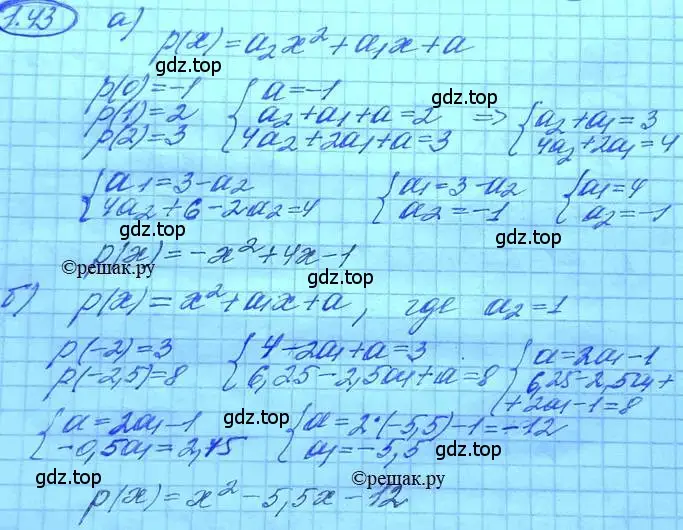 1.43 а)
p(x)=a₂x²+a₁x+a
gdz.top
p(0)=-1
p(1)=2
p(2)=3
{a=-1
a₂+a₁+a=2
4a₂+2a₁+a=3
=> {a₂+a₁=3
4a₂+2a₁=4
gdz.top gdz.top
{a₁=3-a₂
4a₂+6-2a₂=4
{a₁=3-a₂
a₂=-1
{a₁=4
a₂=-1
gdz.top gdz.top
p(x)=-x²+4x-1
©решак.ру
gdz.top
б) p(x)=x²+a₁x+a, где a₂=1
p(-2)=3
p(-2,5)=8
{4-2a₁+a=3
6,25-2,5a₁+a=8
{a=2a₁-1
6,25-2,5a₁+
+2a₁-1=8
gdz.top gdz.top
{a=2a₁-1
-0,5a₁=2,75
{a=2·(-5,5)-1=-12
a₁=-5,5
gdz.top
gdz.top gdz.top
©решак.ру
p(x)=x²-5,5x-12
gdz.top